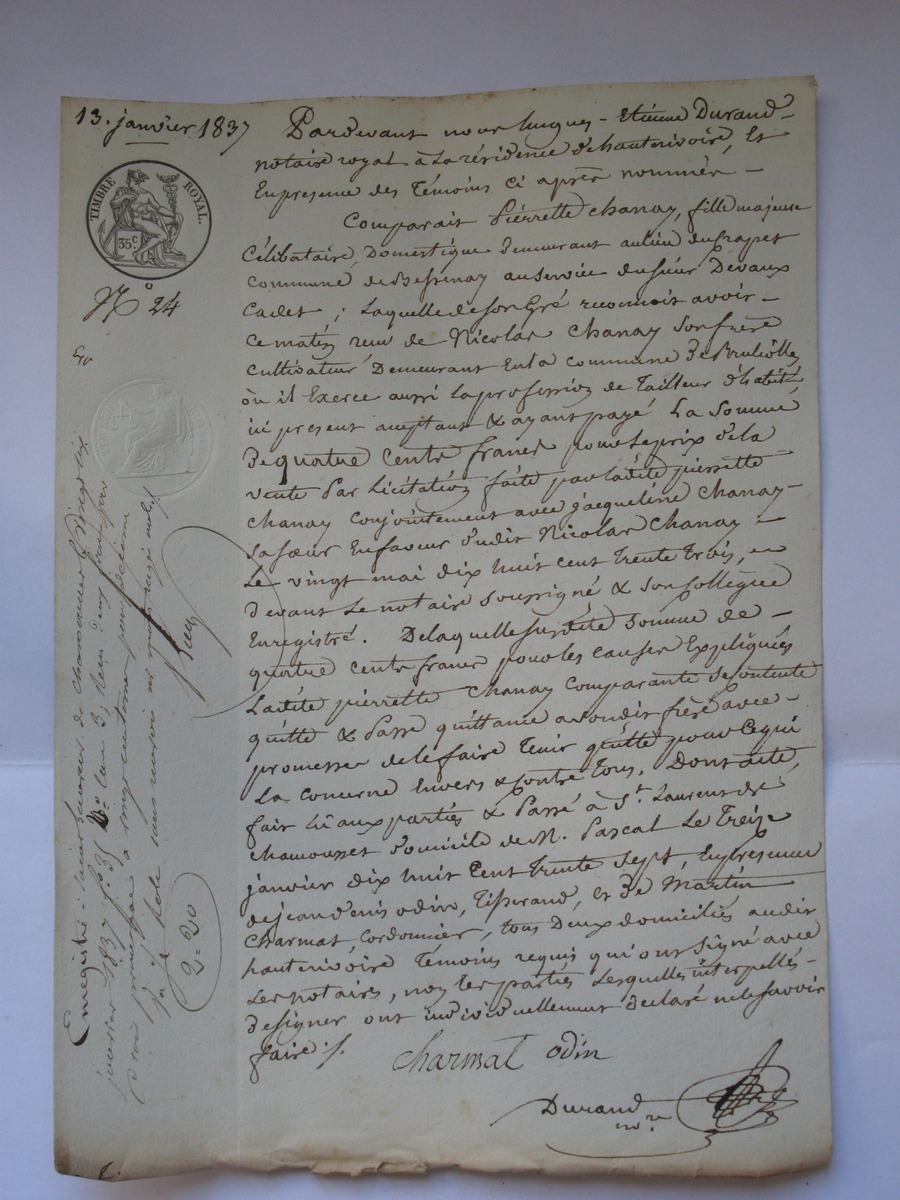 13. janvier 1837
TIMBRE ROYAL.
35c.
No 24
Pardevant nous hugues-Etienne Durand
notaire royal à La résidence d'hauterivoire, Et
En presence des Témoins ci après nommés
Comparait Pierrette Chanay, fille majeure
Célibataire, Domestique demeurant au lieu du
commune de Bessenay au service du sieur Devaux
Cadet ; Laquelle de son Gré reconnoit avoir
ce matin reçu de Nicolas Chanay Son frère
cultivateur Demeurant En la commune de Brulioles
où il Exerce aussi La profession de Tailleur d'habits,
ici present acceptant & ayant payé La Somme
de quatre Cents francs pour Le prix de la
vente Par Licitation faite par Ladite pierrette
Chanay Conjointement avec jacqueline Chanay
Sa sœur En faveur dudit Nicolas Chanay
Le vingt mai dix huit cent trente trois,
devant Le notaire soussigné & son Collegue
Enregistré. De laquelle susdite Somme de
quatre cents francs pour les causes Expliquées
Ladite pierrette Chanay Comparante se contente
quitte & Passe quittance à son dit frère avec
promesse de le faire Tenir quitte pour ce qui
La concerne Envers & contre Tous. Dont acte,
fait Lû aux parties & Passé à St. Laurent de
chamousset domicile de M. Pascal Le Treize
janvier dix huit Cent trente Sept, En presence
de jean denis odin, Tisserand, Et de Martin
Charmat, Cordonnier, tous Deux domiciliés audit
hauterivoire Témoins requis qui ont signé avec
Les notaires, non les parties Lesquelles interpellés
de signer ont individuellement declaré ne le savoir
faire ./.
Charmat odin
Durand
nore
Enregistré à saint Laurent de chamousset le
janvier 1837 fo. 35 Vo. Case 3, Reçu deux francs
à cinq centimes pour décime
2=20